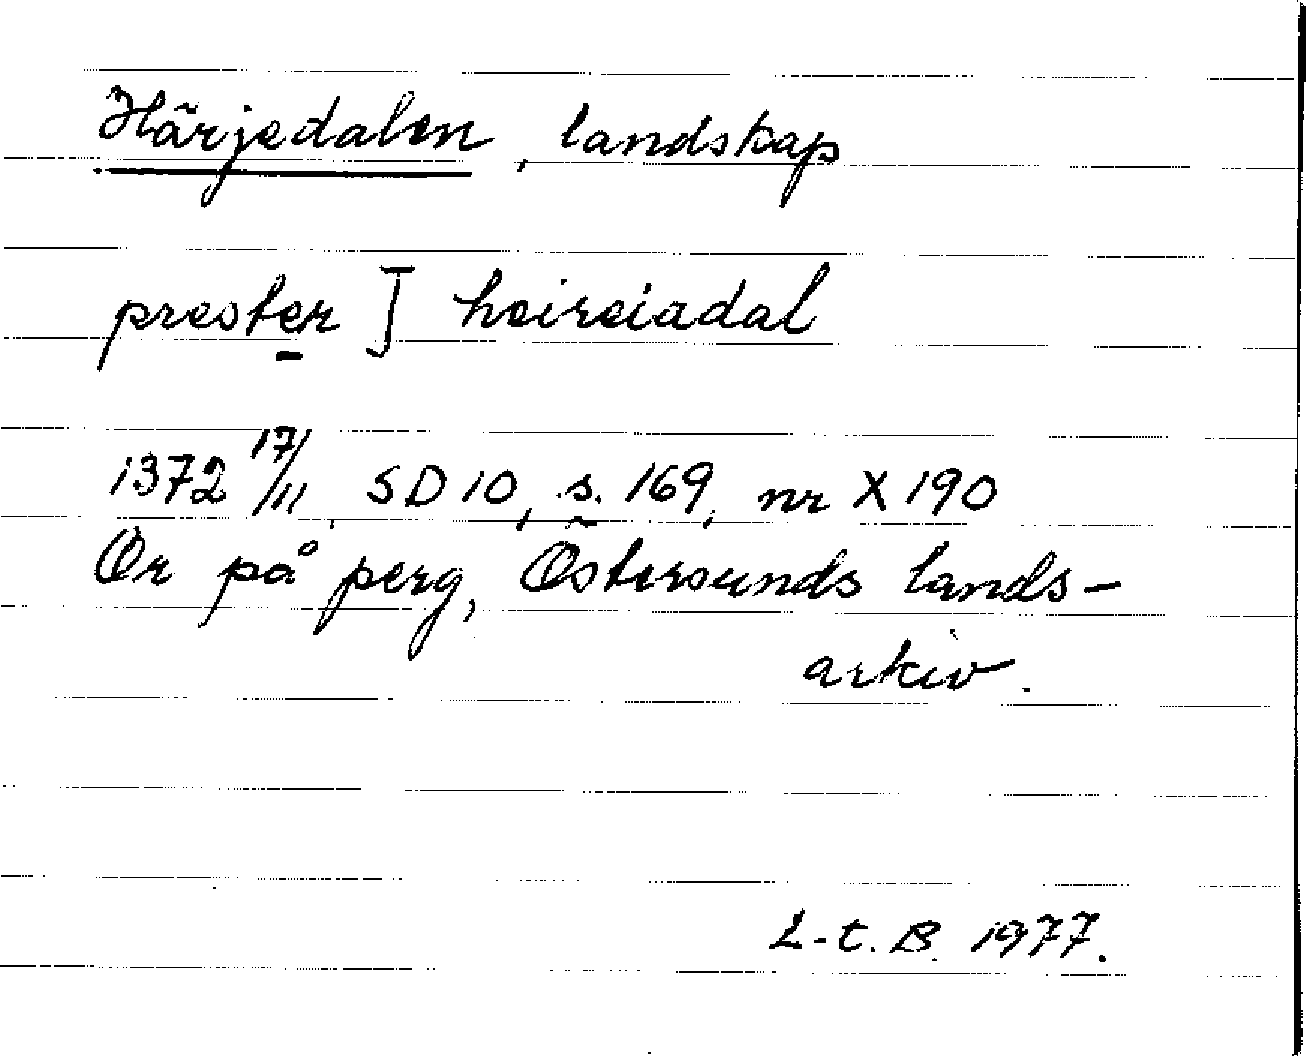 Härjedalen, landskap
prester ] heireiadal
1372 17/11, SD 10, s. 169, nr X 190
Or på perg, Östersunds lands-
arkiv.
L-t. B. 1977.